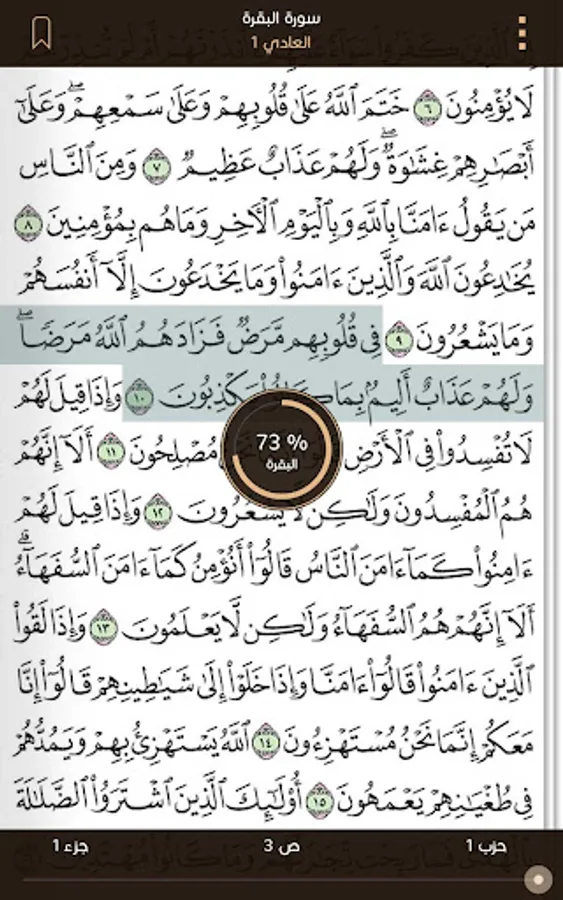 سورة البقرة
العادي 1
لَا يُؤْمِنُونَ ٦ خَتَمَ ٱللَّهُ عَلَىٰ قُلُوبِهِمْ وَعَلَىٰ سَمْعِهِمْۖ وَعَلَىٰٓ
أَبْصَٰرِهِمْ غِشَٰوَةٌۖ وَلَهُمْ عَذَابٌ عَظِيمٌ ٧ وَمِنَ ٱلنَّاسِ
مَن يَقُولُ ءَامَنَّا بِٱللَّهِ وَبِٱلْيَوْمِ ٱلْأَخِرِ وَمَا هُم بِمُؤْمِنِينَ ٨
يُخَٰدِعُونَ ٱللَّهَ وَٱلَّذِينَ ءَامَنُوا۟ وَمَا يَخْدَعُونَ إِلَّآ أَنفُسَهُمْ
وَمَا يَشْعُرُونَ ٩ فِى قُلُوبِهِم مَّرَضٌ فَزَادَهُمُ ٱللَّهُ مَرَضًاۖ
وَلَهُمْ عَذَابٌ أَلِيمٌۢ بِمَا يَكْذِبُونَ ١٠ وَإِذَا قِيلَ لَهُمْ
لَا تُفْسِدُوا۟ فِى ٱلْأَرْضِ مُصْلِحُونَ ١١ أَلَآ إِنَّهُمْ
73 %
البقرة
هُمُ ٱلْمُفْسِدُونَ وَلَٰكِن لَّا يَشْعُرُونَ ١٢ وَإِذَا قِيلَ لَهُمْ
ءَامِنُوا۟ كَمَآ ءَامَنَ ٱلنَّاسُ قَالُوٓا۟ أَنُؤْمِنُ كَمَآ ءَامَنَ ٱلسُّفَهَآءُۗ
أَلَآ إِنَّهُمْ هُمُ ٱلسُّفَهَآءُ وَلَٰكِن لَّا يَعْلَمُونَ ١٣ وَإِذَا لَقُوا۟
ٱلَّذِينَ ءَامَنُوا۟ قَالُوٓا۟ ءَامَنَّا وَإِذَا خَلَوْا۟ إِلَىٰ شَيَٰطِينِهِمْ قَالُوٓا۟ إِنَّا
مَعَكُمْ إِنَّمَا نَحْنُ مُسْتَهْزِءُونَ ١٤ ٱللَّهُ يَسْتَهْزِئُ بِهِمْ وَيَمُدُّهُمْ
فِى طُغْيَٰنِهِمْ يَعْمَهُونَ ١٥ أُو۟لَٰٓئِكَ ٱلَّذِينَ ٱشْتَرَوُا۟ ٱلضَّلَٰلَةَ
حزب 1
ص 3
جزء 1